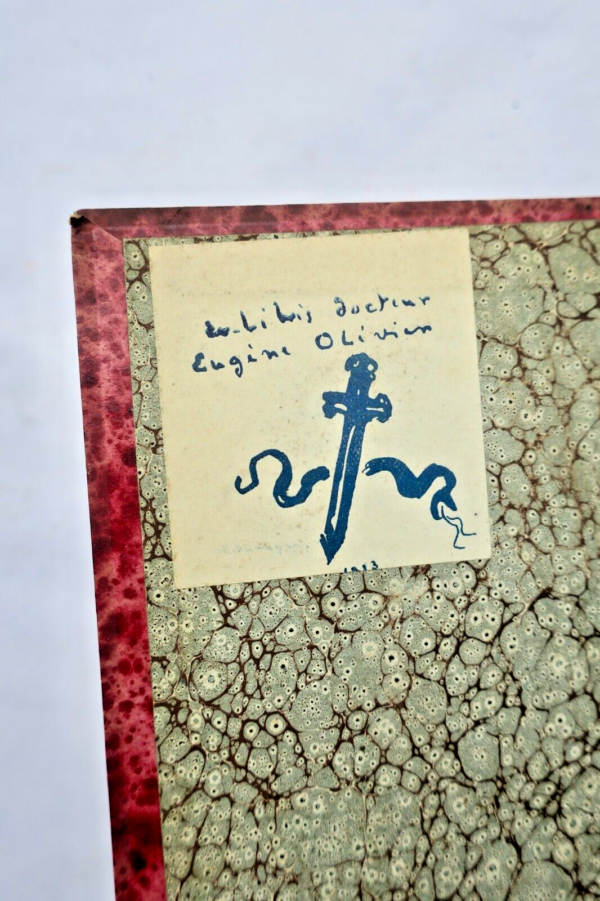 ex-Libris docteur
Eugène Olivier
1913